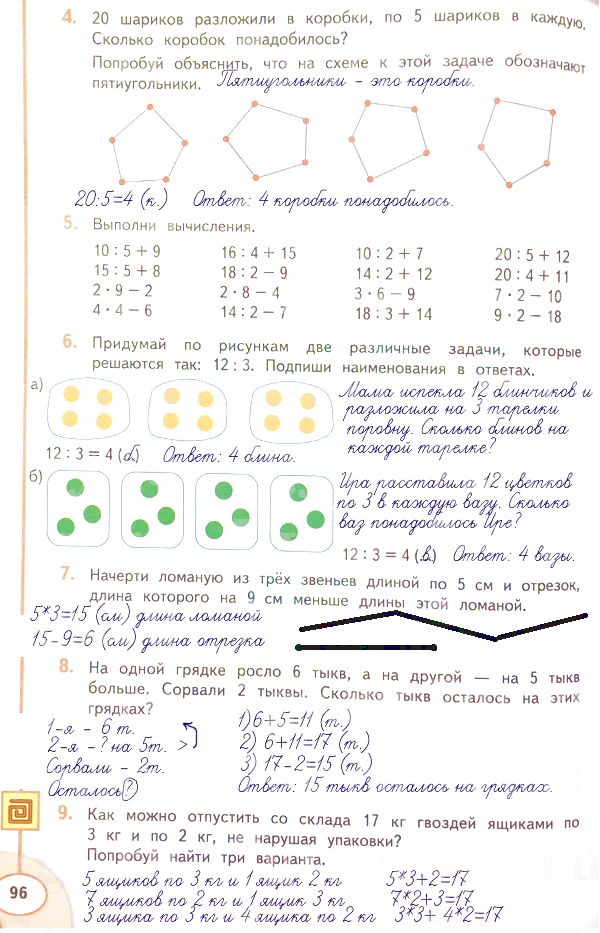 4. 20 шариков разложили в коробки, по 5 шариков в каждую.
Сколько коробок понадобилось?
Попробуй объяснить, что на схеме к этой задаче обозначают
пятиугольники. Пятиугольники - это коробки.
20:5=4 (к.) Ответ: 4 коробки понадобилось.
5. Выполни вычисления.
10 : 5 + 9 16 : 4 + 15 10 : 2 + 7 20 : 5 + 12
15 : 5 + 8 18 : 2 − 9 14 : 2 + 12 20 : 4 + 11
2 · 9 − 2 2 · 8 − 4 3 · 6 − 9 7 · 2 − 10
4 · 4 − 6 14 : 2 − 7 18 : 3 + 14 9 · 2 − 18
6. Придумай по рисункам две различные задачи, которые
решаются так: 12 : 3. Подпиши наименования в ответах.
а) Мама испекла 12 блинчиков и
разложила на 3 тарелки
поровну. Сколько блинов на
каждой тарелке?
12 : 3 = 4 (б.) Ответ: 4 блина.
б) Ира расставила 12 цветков
по 3 в каждую вазу. Сколько
ваз понадобилось Ире?
12 : 3 = 4 (в.) Ответ: 4 вазы.
7. Начерти ломаную из трёх звеньев длиной по 5 см и отрезок,
длина которого на 9 см меньше длины этой ломаной.
5*3=15 (см) длина ломаной
15-9=6 (см) длина отрезка
8. На одной грядке росло 6 тыкв, а на другой — на 5 тыкв
больше. Сорвали 2 тыквы. Сколько тыкв осталось на этих
грядках?
1-я - 6 т. 1) 6+5=11 (т.)
2-я - ? на 5т. > 2) 6+11=17 (т.)
Сорвали - 2т. 3) 17-2=15 (т.)
Осталось ? Ответ: 15 тыкв осталось на грядках.
9. Как можно отпустить со склада 17 кг гвоздей ящиками по
3 кг и по 2 кг, не нарушая упаковки?
Попробуй найти три варианта.
5 ящиков по 3 кг и 1 ящик 2 кг 5*3+2=17
7 ящиков по 2 кг и 1 ящик 3 кг 7*2+3=17
3 ящика по 3 кг и 4 ящика по 2 кг 3*3+ 4*2=17
96